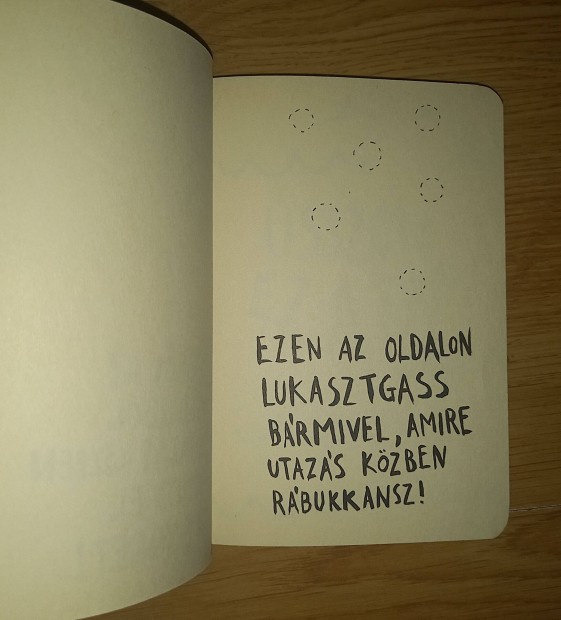 EZEN AZ OLDALON
LUKASZTGASS
BÁRMIVEL, AMIRE
UTAZÁS KÖZBEN
RÁBUKKANSZ!